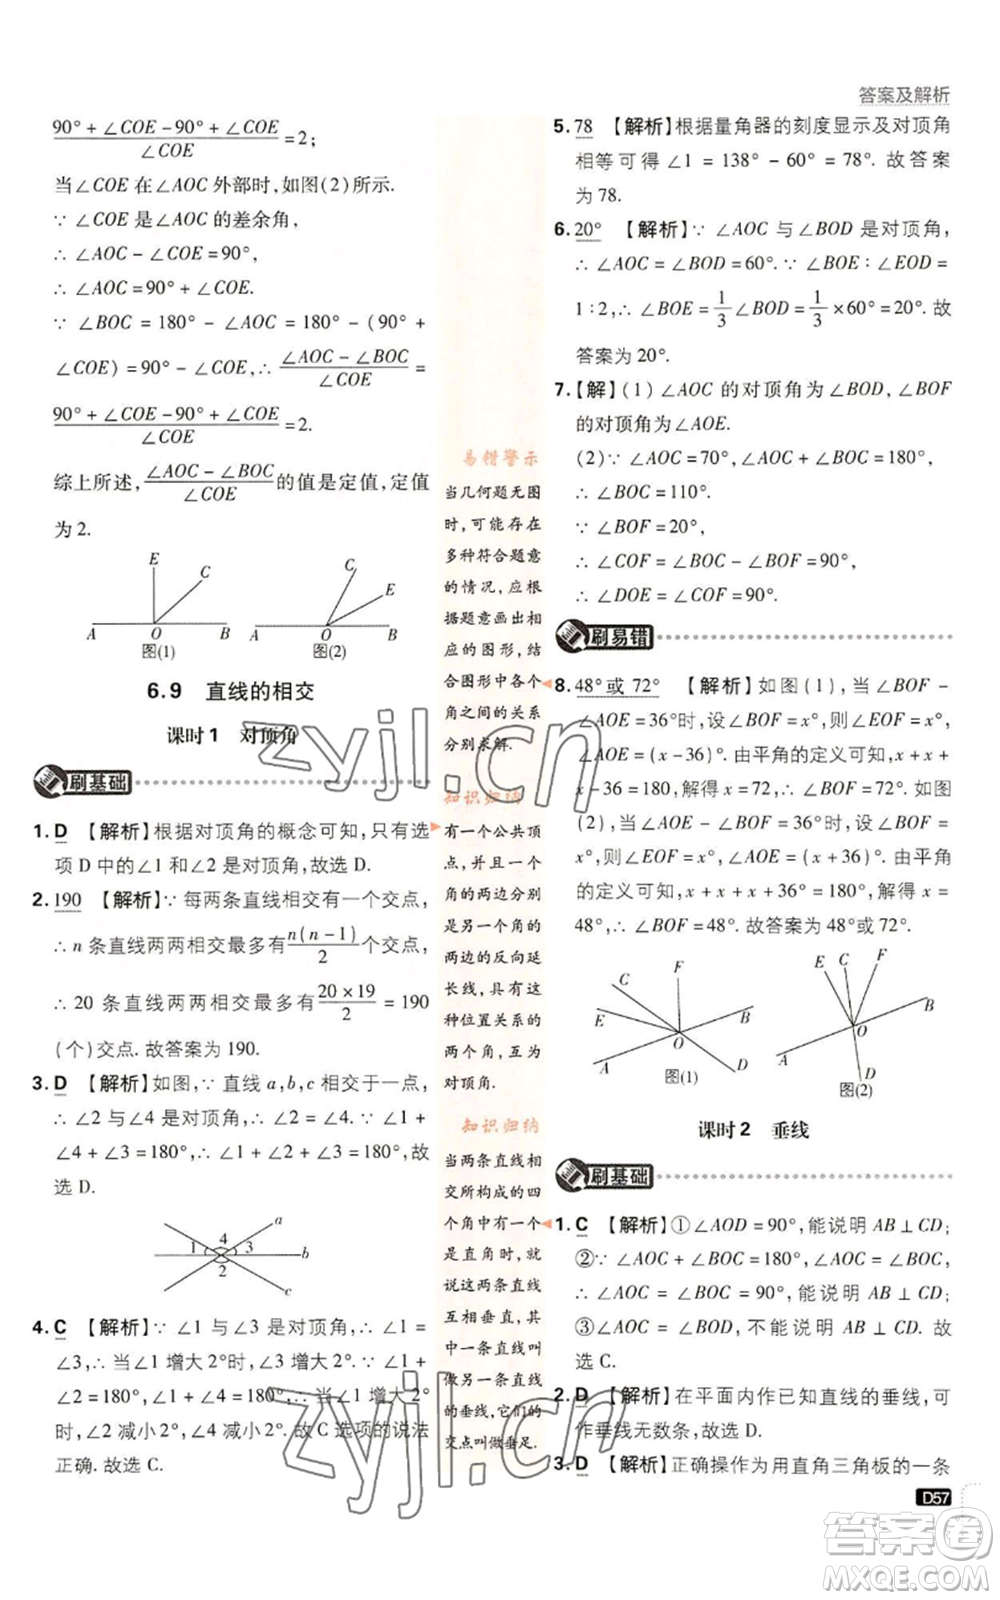 答案及解析
90°+∠COE-90°+∠COE
∠COE
=2;
当∠COE 在∠AOC 外部时,如图(2)所示.
∵ ∠COE 是∠AOC 的差余角,
∴ ∠AOC - ∠COE = 90°,
∴ ∠AOC = 90° + ∠COE.
∵ ∠BOC = 180° - ∠AOC = 180° - (90° +
∠COE) = 90° - ∠COE,∴ (∠AOC - ∠BOC)/∠COE =
(90°+∠COE-90°+∠COE)/∠COE = 2.
综上所述,(∠AOC - ∠BOC)/∠COE 的值是定值,定值
为 2.
E C A O B 图(1)
C E A O B 图(2)
6.9 直线的相交
课时 1 对顶角
刷基础
1. D 【解析】根据对顶角的概念可知,只有选
项 D 中的∠1 和∠2 是对顶角,故选 D.
2. 190 【解析】∵ 每两条直线相交有一个交点,
∴ n 条直线两两相交最多有 n(n-1)/2 个交点,
∴ 20 条直线两两相交最多有 20×19/2 = 190
(个)交点. 故答案为 190.
3. D 【解析】如图,∵ 直线 a,b,c 相交于一点,
∴ ∠2 与∠4 是对顶角,∴ ∠2 = ∠4. ∵ ∠1 +
∠4 + ∠3 = 180°,∴ ∠1 + ∠2 + ∠3 = 180°,故
选 D.
a 1 4 3 b 2 c
4. C 【解析】∵ ∠1 与∠3 是对顶角,∴ ∠1 =
∠3,∴ 当∠1 增大 2°时,∠3 增大 2°. ∵ ∠1 +
∠2 = 180°,∠1 + ∠4 = 180°,∴ 当∠1 增大 2°
时,∠2 减小 2°,∠4 减小 2°. 故 C 选项的说法
正确. 故选 C.
易错警示
当几何题无图
时,可能存在
多种符合题意
的情况,应根
据题意画出相
应的图形,结
合图形中各个
角之间的关系
分别求解.
知识归纳
有一个公共顶
点,并且一个
角的两边分别
是另一个角的
两边的反向延
长线,具有这
种位置关系的
两个角,互为
对顶角.
知识归纳
当两条直线相
交所构成的四
个角中有一个
是直角时,就
说这两条直线
互相垂直,其
中一条直线叫
做另一条直线
的垂线,它们的
交点叫做垂足.
5. 78 【解析】根据量角器的刻度显示及对顶角
相等可得 ∠1 = 138° - 60° = 78°. 故答案
为 78.
6. 20° 【解析】∵ ∠AOC 与∠BOD 是对顶角,
∴ ∠AOC = ∠BOD = 60°. ∵ ∠BOE : ∠EOD =
1 : 2,∴ ∠BOE = 1/3 ∠BOD = 1/3 × 60° = 20°. 故
答案为 20°.
7.【解】(1) ∠AOC 的对顶角为∠BOD,∠BOF
的对顶角为∠AOE.
(2)∵ ∠AOC = 70°,∠AOC + ∠BOC = 180°,
∴ ∠BOC = 110°.
∵ ∠BOF = 20°,
∴ ∠COF = ∠BOC - ∠BOF = 90°,
∴ ∠DOE = ∠COF = 90°.
刷易错
8. 48° 或 72° 【解析】如图(1),当∠BOF -
∠AOE = 36°时,设∠BOF = x°,则∠EOF = x°,
∠AOE = (x - 36)°. 由平角的定义可知,x + x +
x - 36 = 180,解得 x = 72,∴ ∠BOF = 72°. 如图
(2),当∠AOE - ∠BOF = 36°时,设∠BOF =
x°,则∠EOF = x°,∠AOE = (x + 36)°. 由平角
的定义可知,x + x + x + 36° = 180°,解得 x =
48°,∴ ∠BOF = 48°. 故答案为 48°或 72°.
C F E B O A D 图(1)
E C F B O A D 图(2)
课时 2 垂线
刷基础
1. C 【解析】①∠AOD = 90°,能说明 AB⊥CD;
②∵ ∠AOC + ∠BOC = 180°,∠AOC = ∠BOC,
∴ ∠AOC = ∠BOC = 90°,能说明 AB ⊥ CD;
③∠AOC = ∠BOD,不能说明 AB ⊥ CD. 故
选 C.
2. D 【解析】在平面内作已知直线的垂线,可
作垂线无数条,故选 D.
3. D 【解析】正确操作为用直角三角板的一条
D57
zyjl.cn
zyjl.cn
答案卷
MXQE.COM